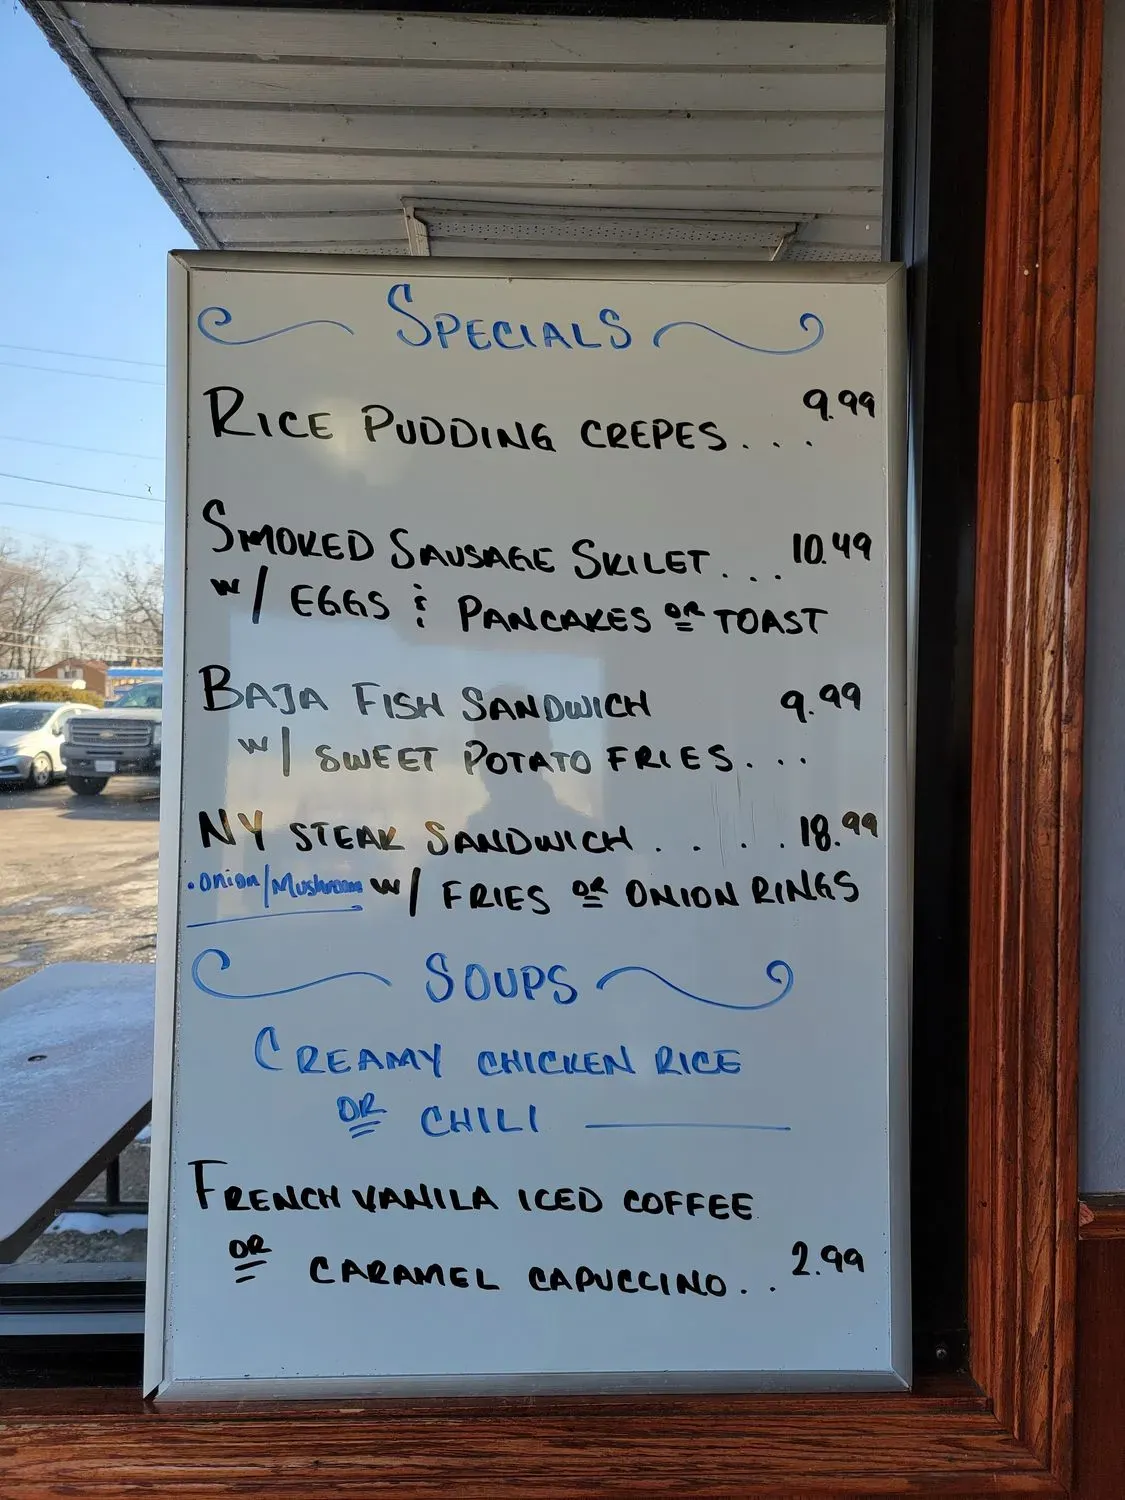 SPECIALS
RICE PUDDING CREPES... 9.99
SMOKED SAUSAGE SKILET... 10.49
W/ EGGS & PANCAKES OR TOAST
BAJA FISH SANDWICH 9.99
W/ SWEET POTATO FRIES...
NY STEAK SANDWICH..... 18.99
.Onion/Mushroom W/ FRIES OR ONION RINGS
SOUPS
CREAMY CHICKEN RICE
OR CHILI
FRENCH VANILA ICED COFFEE
OR CARAMEL CAPUCCINO.. 2.99